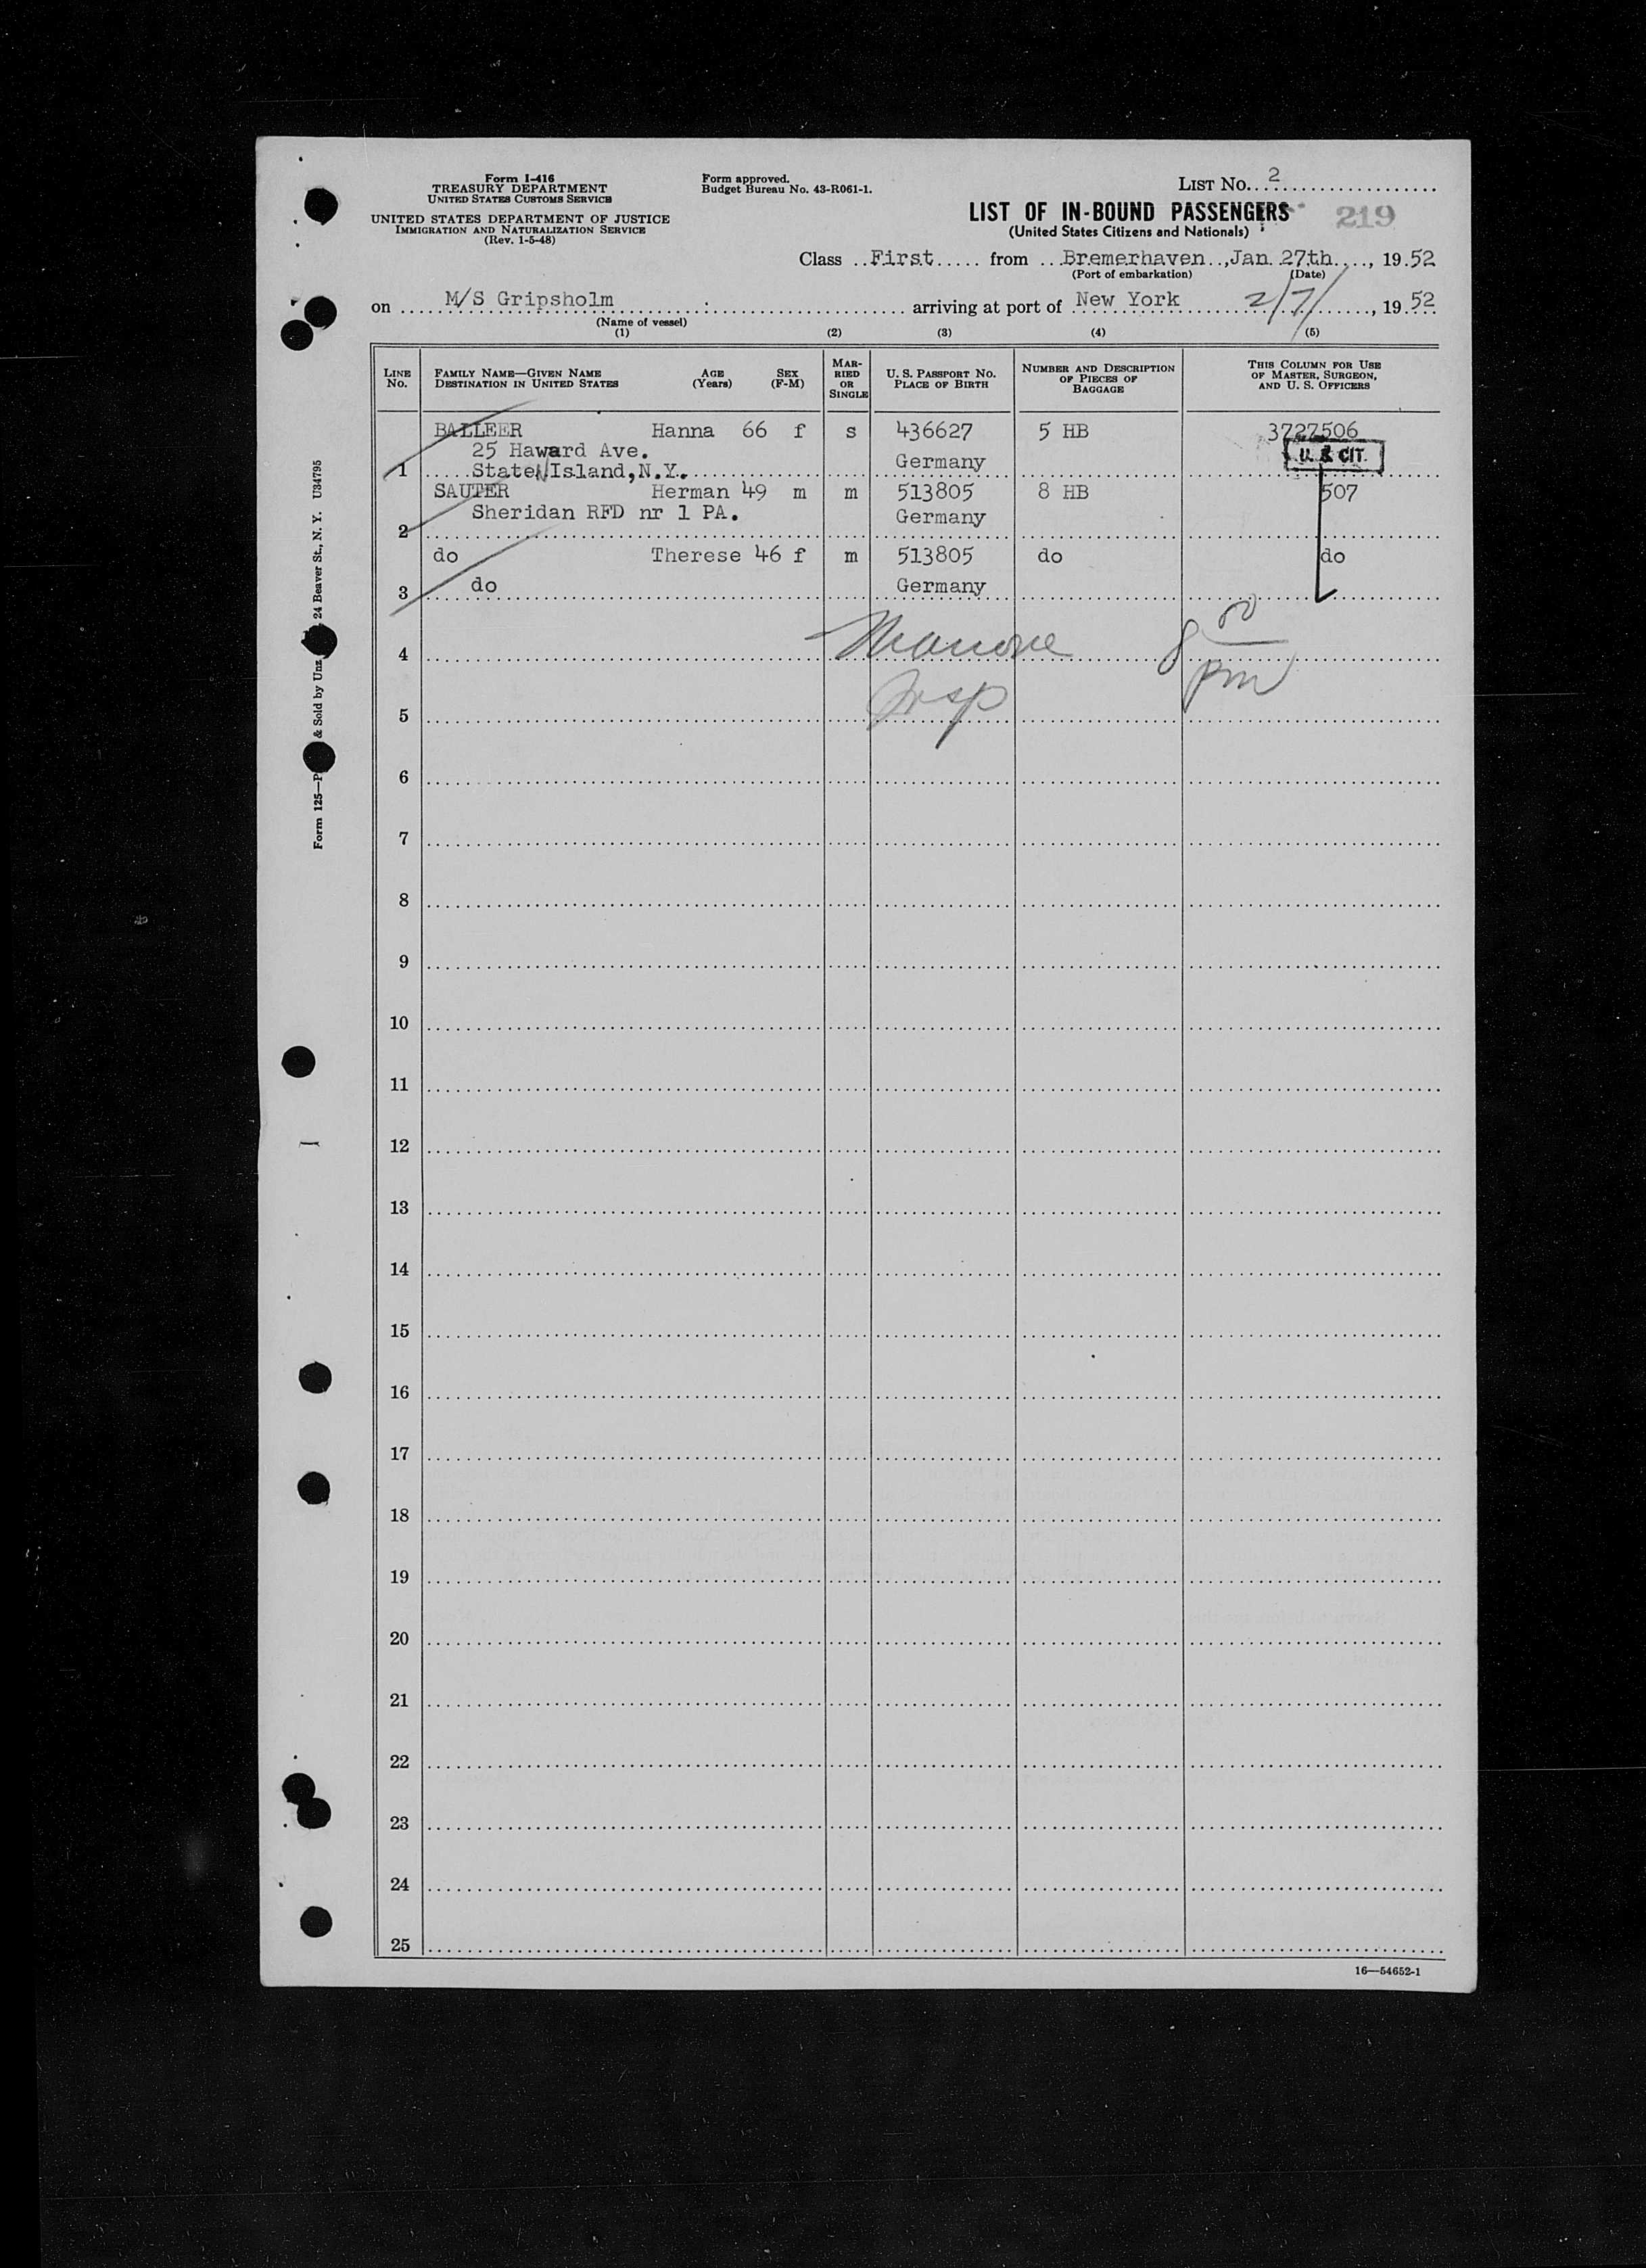 Form I-416
TREASURY DEPARTMENT
UNITED STATES CUSTOMS SERVICE
UNITED STATES DEPARTMENT OF JUSTICE
IMMIGRATION AND NATURALIZATION SERVICE
(Rev. 1-5-48)
Form approved.
Budget Bureau No. 43-R061-1.
LIST No. 2
LIST OF IN-BOUND PASSENGERS 219
(United States Citizens and Nationals)
Class First from Bremerhaven, Jan. 27th, 1952
(Port of embarkation) (Date)
on M/S Gripsholm arriving at port of New York 2/7/, 1952
(Name of vessel)
(1) (2) (3) (4) (5)
LINE No. FAMILY NAME—GIVEN NAME DESTINATION IN UNITED STATES AGE (Years) SEX (F-M) MARRIED OR SINGLE U. S. PASSPORT No. PLACE OF BIRTH NUMBER AND DESCRIPTION OF PIECES OF BAGGAGE THIS COLUMN FOR USE OF MASTER, SURGEON, AND U. S. OFFICERS
BALLEER Hanna 66 f s 436627 5 HB 3727506
25 Haward Ave. U. S. CIT.
1 StateN Island,N.Y. Germany
SAUTER Herman 49 m m 513805 8 HB 507
Sheridan RFD nr 1 PA. Germany
2
do Therese 46 f m 513805 do do
3 do Germany
4 8 00 pm
5 Insp
6
7
8
9
10
11
12
13
14
15
16
17
18
19
20
21
22
23
24
25
16—54652-1
Form 125—P & Sold by Unz 24 Beaver St., N. Y. U34795